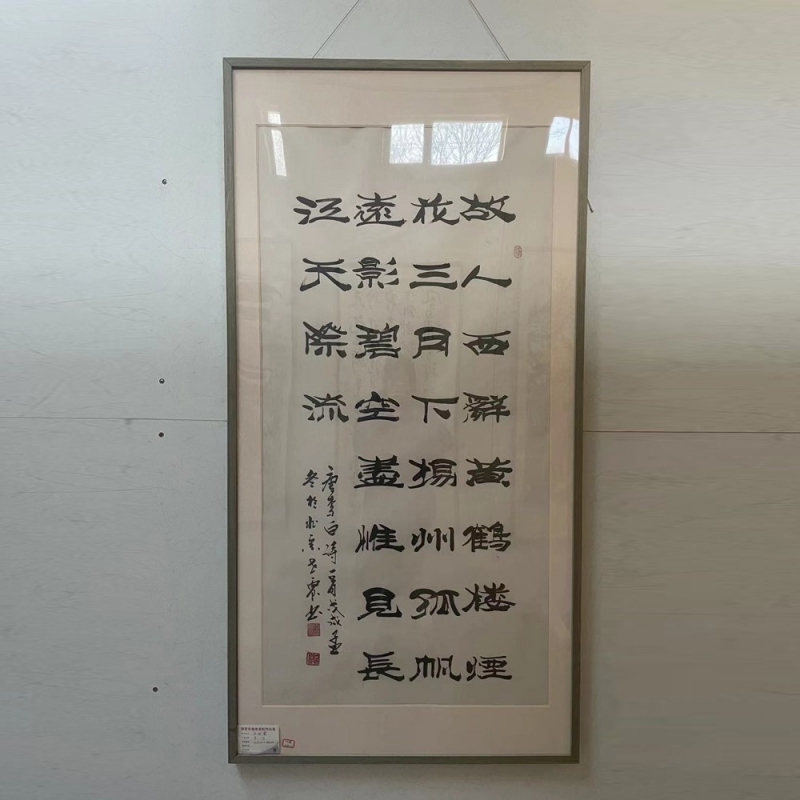 故人西辭黃鶴楼煙
花三月下揚州孤帆
遠影碧空盡惟見長
江天際流
唐李白詩一首